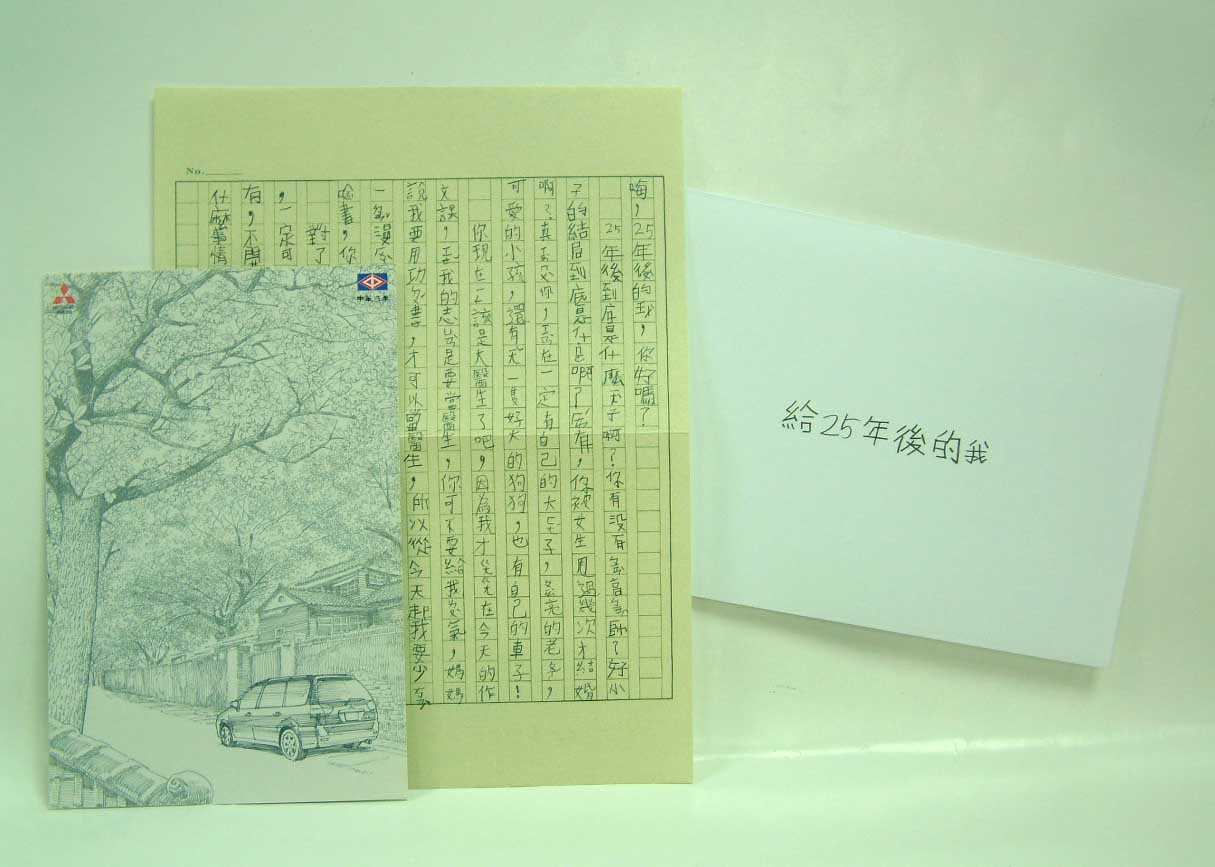 No.
嗨,25年後的我,你好嗎?
25年後到底是什麼子啊?你有沒有高帥?好小
子的結局到底是什啊?有,你被女生甩過幾次才結婚
啊?真你,在一定有自己的大子,亮的老,
可愛的小孩,還有一隻好大的狗狗,也有自己的車子!
你現在該是大醫生了吧,因為我才在今天的作
文課,我的志是要當醫生,你可不要給我氣,媽媽
說我要用功書,才可以當醫生,所以從今天起我要少
一漫
唸書,你
對了
,一定可
有,不開
什麼事情
中華汽車
給25年後的我